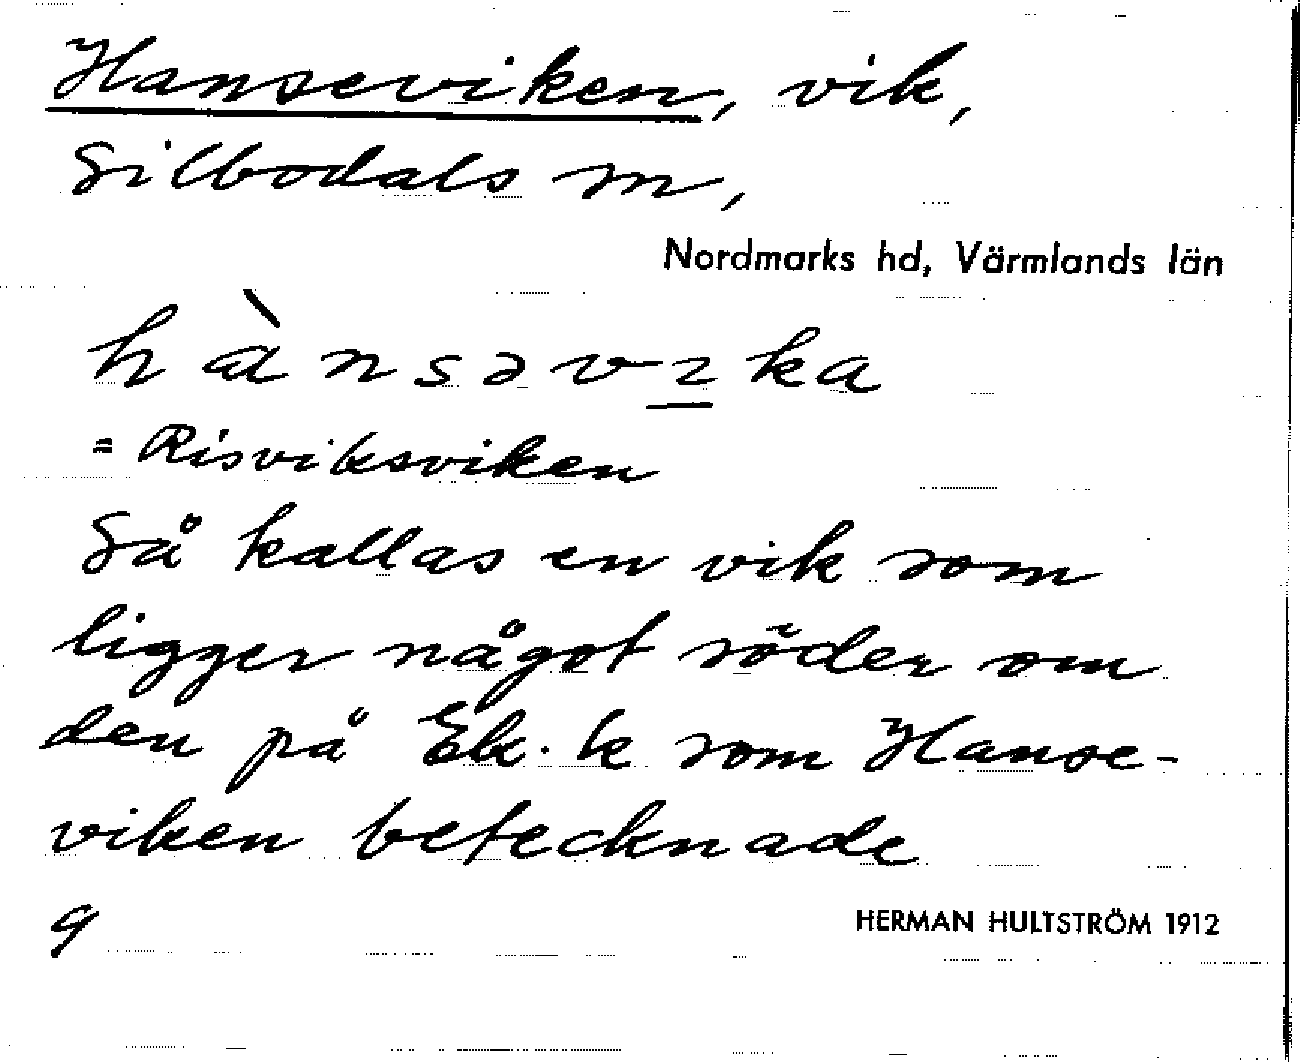 Hanseviken, vik,
Silbodals sn,
Nordmarks hd, Värmlands län
hànsəvɩ̠ka
= Risviksviken
Så kallas en vik som
ligger något söder om
den på Ek. k som Hanse-
viken betecknade
9
HERMAN HULTSTRÖM 1912